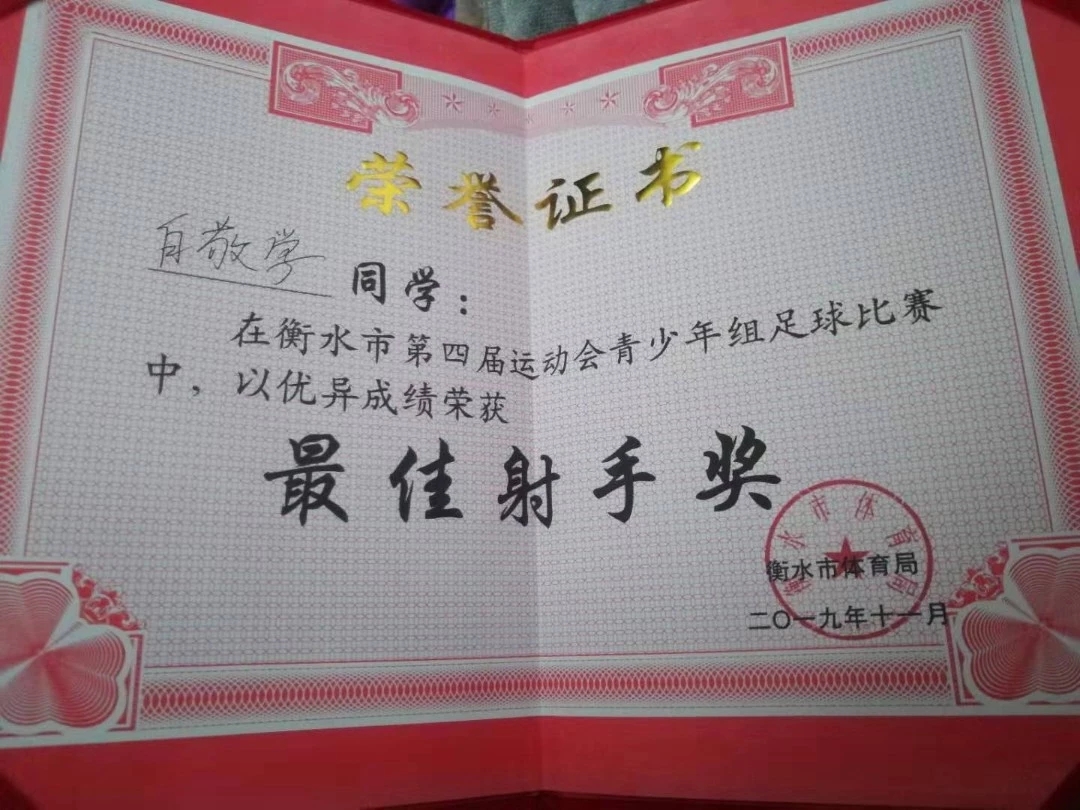 荣誉证书
自敬学 同学：
在衡水市第四届运动会青少年组足球比赛
中，以优异成绩荣获
最佳射手奖
衡水市体育局
衡水市体育局
二〇一九年十一月